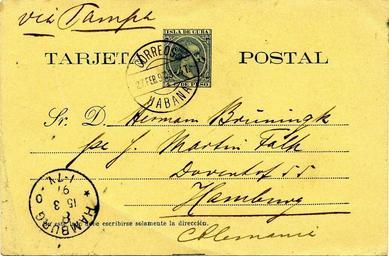 via Tampa
ISLA DE CUBA
TARJETA POSTAL
CORREOS
27 FEB 9
HABANA
Sr. D. Herman Brüningk
pr J. Martin Falk
Dovenhof 55
Hamburg
Alemania
HAMBURG O
1-7 V
97
15 3
8
escribirse solamente la dirección.